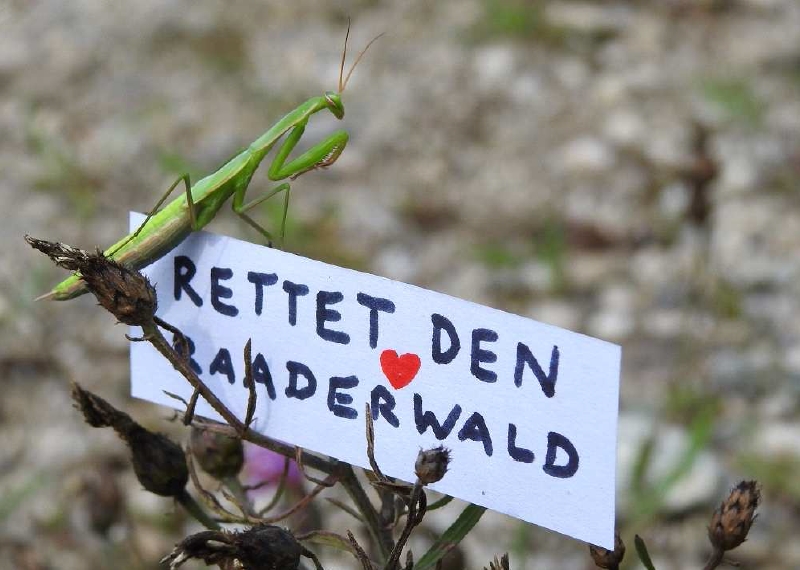 RETTET DEN
BAADERWALD